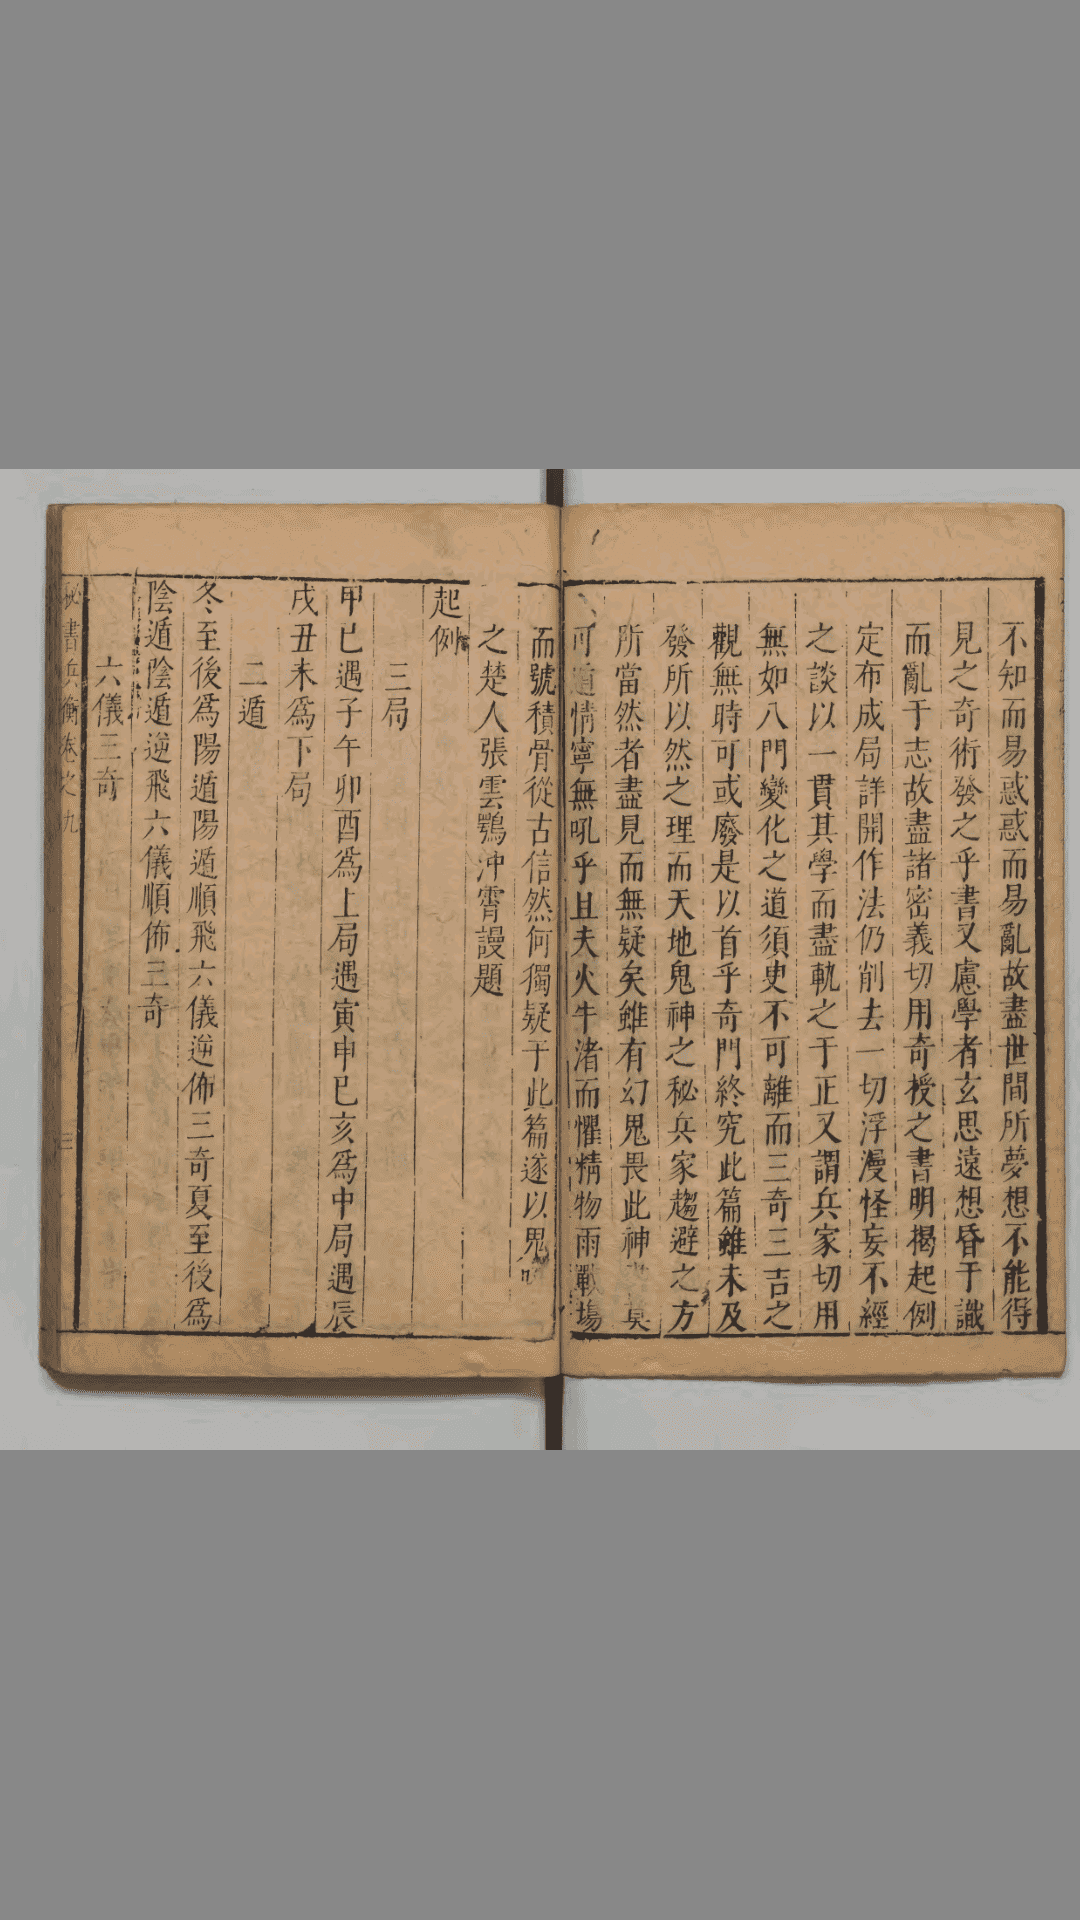 不知而易惑惑而易亂故盡世間所夢想不能得
見之奇術發之乎書又慮學者玄思遠想昏于識
而亂于志故盡諸密義切用奇授之書明揭起例
定布成局詳開作法仍削去一切浮漫怪妄不經
之談以一貫其學而盡軌之于正又謂兵家切用
無如八門變化之道須臾不可離而三奇三吉之
觀無時可或廢是以首乎奇門終究此篇雖未及
發所以然之理而天地鬼神之秘兵家趨避之方
所當然者盡見而無疑矣雖有幻鬼畏此神奠
可道情寧無吼乎且夫火牛渚而懼精物雨戰場
而號積骨從古信然何獨疑于此篇遂以鬼
之楚人張雲鶚沖霄謾題
起例
三局
甲已遇子午卯酉爲上局遇寅申巳亥爲中局遇辰
戌丑未爲下局
二遁
冬至後爲陽遁陽遁順飛六儀逆佈三奇夏至後爲
陰遁陰遁逆飛六儀順佈三奇
六儀三奇
秘書兵衡卷之九
三